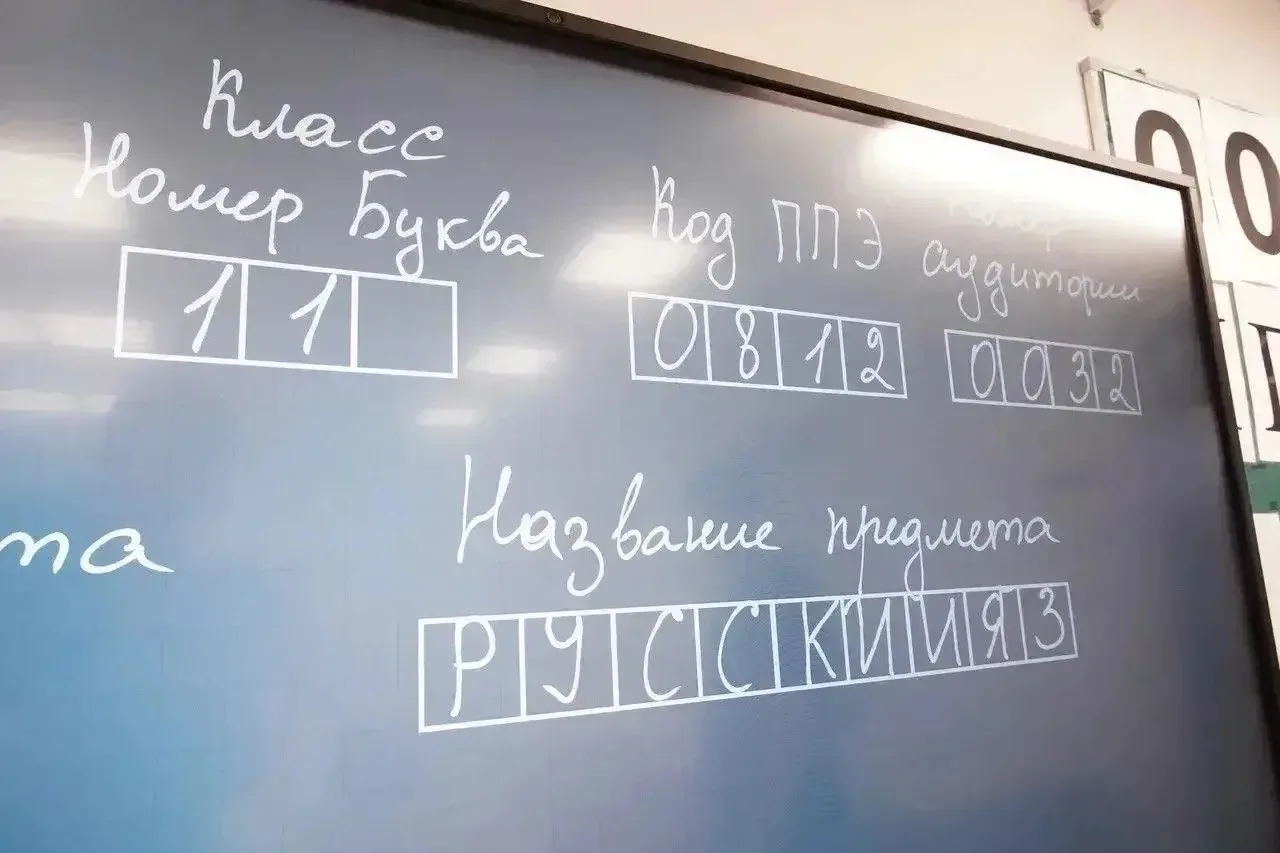 Класс
Номер Буква
11
Код ППЭ
0812
Номер
аудитории
0032
та
Название предмета
РУССКИИЯЗ